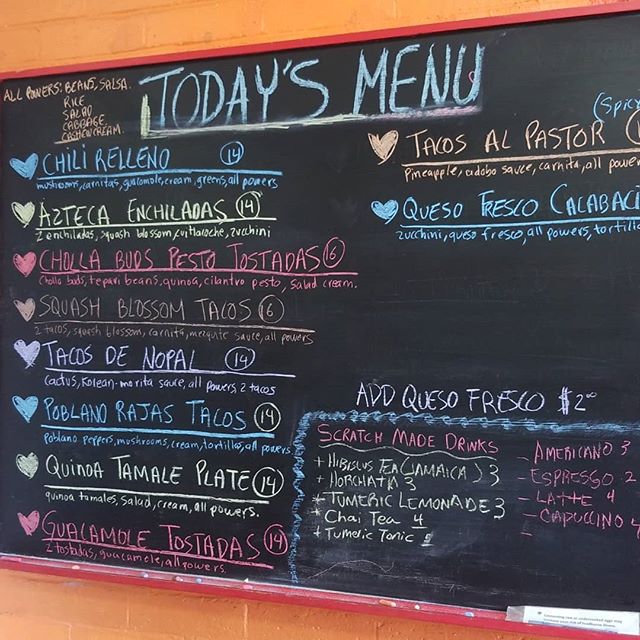 TODAY'S MENU
ALL POWERS: BEANS, SALSA.
RICE
SALAD
CABBAGE.
CASHEW CREAM.
CHILI RELLENO 14
mushrooms, carnitas, guacamole, cream, greens, all powers
AZTECA ENCHILADAS 14
2 enchiladas, squash blossom, cuitlacoche, zucchini
CHOLLA BUDS PESTO TOSTADAS 16
Cholla buds, tepari beans, quinoa, cilantro pesto, salad cream.
SQUASH BLOSSOM TACOS 16
2 tacos, squash blossom, carnita, mezquite sauce, all powers
TACOS DE NOPAL 14
cactus, Korean-morita sauce, all powers, 2 tacos
POBLANO RAJAS TACOS 14
Poblano peppers, mushrooms, cream, tortillas, all powers
QUINOA TAMALE PLATE 14
quinoa tamales, salad, cream, all powers.
GUACAMOLE TOSTADAS 14
2 tostadas, guacamole, all powers.
(Spic
TACOS AL PASTOR
Pineapple, adobo sauce, carnita, all power
QUESO FRESCO CALABACI
zucchini, queso fresco, all powers, tortilla
ADD QUESO FRESCO $2.00
SCRATCH MADE DRINKS
+ HIBISCUS TEA (JAMAICA) 3
+ HORCHATA 3
* TUMERIC LEMONADE 3
* Chai Tea 4
+ Tumeric Tonic 5
- AMERICANO 3
- ESPRESSO 2
- LATTE 4
- CAPUCCINO 4
-